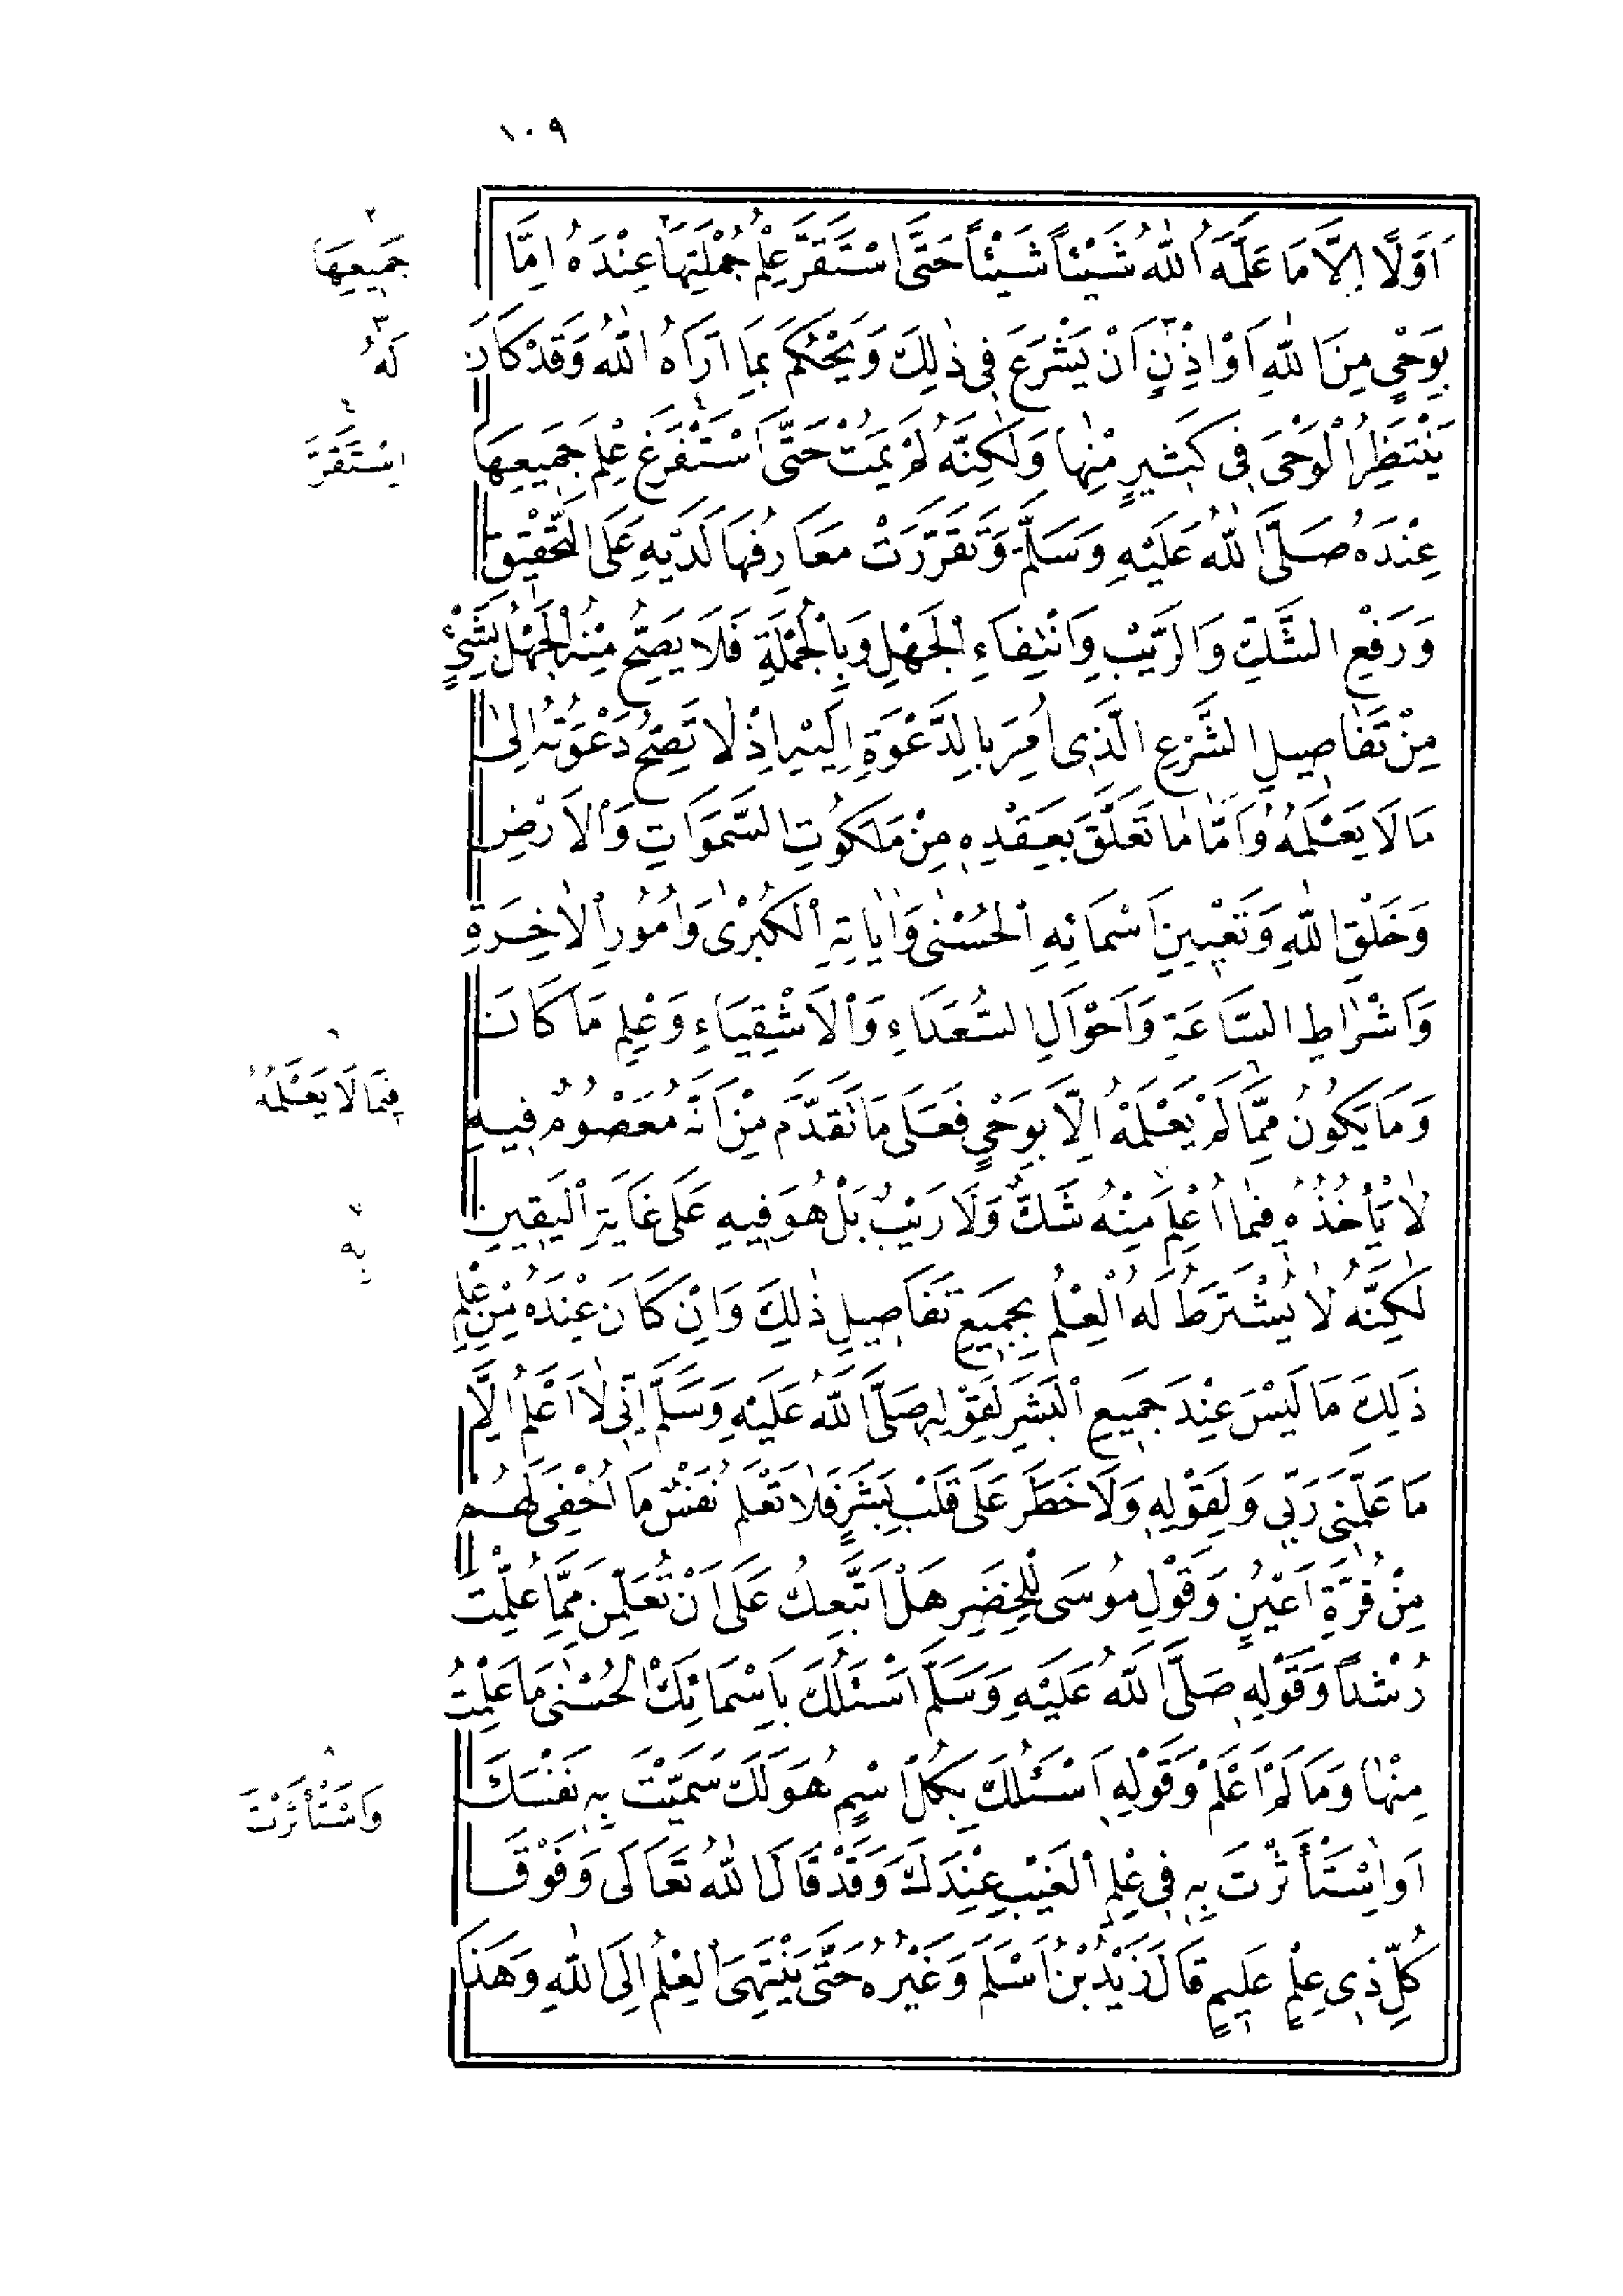 ١٠٩
اَوَّلًا اِلَّا مَا عَلَّمَهُ اللهُ شَيْئًا شَيْئًا حَتَّى اسْتَقَرَّ عِلْمُ جُمْلَتِهَا عِنْدَهُ اِمَّا
بِوَحْيٍ مِنَ اللهِ اَوْ اِذْنٍ اَنْ يَشْرَعَ فِى ذٰلِكَ وَيَحْكُمَ بِمَا اَرَاهُ اللهُ وَقَدْ كَانَ
يَنْتَظِرُ الْوَحْىَ فِى كَثِيرٍ مِنْهَا وَلٰكِنَّهُ لَمْ يَمُتْ حَتَّى اسْتَفْرَغَ عِلْمَ جَمِيعِهَا
عِنْدَهُ صَلَّى اللهُ عَلَيْهِ وَسَلَّمَ وَتَقَرَّرَتْ مَعَارِفُهَا لَدَيْهِ عَلَى التَّحْقِيقِ
وَرَفْعِ الشَّكِّ وَالرَّيْبِ وَانْتِفَاءِ الْجَهْلِ وَبِالْجُمْلَةِ فَلَا يَصِحُّ مِنْهُ الْجَهْلُ بِشَيْءٍ
مِنْ تَفَاصِيلِ الشَّرْعِ الَّذِى اُمِرَ بِالدَّعْوَةِ اِلَيْهِ اِذْ لَا تَصِحُّ دَعْوَتُهُ اِلٰى
مَا لَا يَعْلَمُهُ وَاَمَّا مَا تَعَلَّقَ بِعَقْدِهِ مِنْ مَلَكُوتِ السَّمَوَاتِ وَالْاَرْضِ
وَخَلْقِ اللهِ وَتَعْيِينِ اَسْمَائِهِ الْحُسْنٰى وَاٰيَاتِهِ الْكُبْرٰى وَاُمُورِ الْاٰخِرَةِ
وَاَشْرَاطِ السَّاعَةِ وَاَحْوَالِ السُّعَدَاءِ وَالْاَشْقِيَاءِ وَعِلْمِ مَا كَانَ
وَمَا يَكُونُ مِمَّا لَمْ يَعْلَمْهُ اِلَّا بِوَحْيٍ فَعَلَى مَا تَقَدَّمَ مِنْ اَنَّهُ مَعْصُومٌ فِيهِ
لَا يَأْخُذُهُ فِيمَا اُعْلِمَ مِنْهُ شَكٌّ وَلَا رَيْبٌ بَلْ هُوَ فِيهِ عَلَى غَايَةِ الْيَقِينِ
لٰكِنَّهُ لَا يُشْتَرَطُ لَهُ الْعِلْمُ بِجَمِيعِ تَفَاصِيلِ ذٰلِكَ وَاِنْ كَانَ عِنْدَهُ مِنْ عِلْمِ
ذَلِكَ مَا لَيْسَ عِنْدَ جَمِيعِ الْبَشَرِ لِقَوْلِهِ صَلَّى اللهُ عَلَيْهِ وَسَلَّمَ اِنِّى لَا اَعْلَمُ اِلَّا
مَا عَلَّمَنِى رَبِّى وَلِقَوْلِهِ وَلَا خَطَرَ عَلَى قَلْبِ بَشَرٍ فَلَا تَعْلَمُ نَفْسٌ مَا اُخْفِىَ لَهُمْ
مِنْ قُرَّةِ اَعْيُنٍ وَقَوْلِ مُوسَى لِلْخِضَرِ هَلْ اَتَّبِعُكَ عَلَى اَنْ تُعَلِّمَنِ مِمَّا عُلِّمْتَ
رُشْدًا وَقَوْلِهِ صَلَّى اللهُ عَلَيْهِ وَسَلَّمَ اَسْئَلُكَ بِاَسْمَائِكَ الْحُسْنٰى مَا عَلِمْتُ
مِنْهَا وَمَا لَمْ اَعْلَمْ وَقَوْلِهِ اَسْئَلُكَ بِكُلِّ اسْمٍ هُوَ لَكَ سَمَّيْتَ بِهِ نَفْسَكَ
اَوِ اسْتَأْثَرْتَ بِهِ فِى عِلْمِ الْغَيْبِ عِنْدَكَ وَقَدْ قَالَ اللهُ تَعَالَى وَفَوْقَ
كُلِّ ذِى عِلْمٍ عَلِيمٌ قَالَ زَيْدُ بْنُ اَسْلَمَ وَغَيْرُهُ حَتَّى يَنْتَهِىَ الْعِلْمُ اِلَى اللهِ وَهَذَا
٢
جَمِيعِهَا
٣
لَهُ
٤
اِسْتَقَرَّ
٦
فِيمَا لَا يَعْلَمُهُ
٧
بِهِ
٨
وَاسْتَأْثَرْتَ